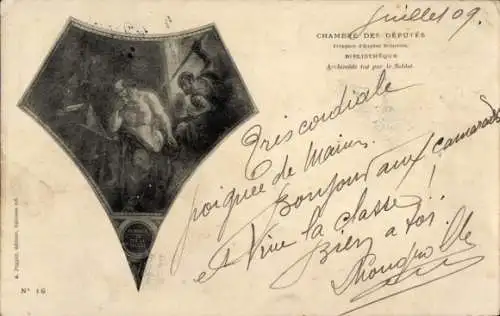 Juillet 09.
CHAMBRE DES DÉPUTÉS
Peinture d'Eugène Delacroix
BIBLIOTHÈQUE
Archimède tué par le Soldat.
Très cordiale
poignée de main.
Bonjour aux camarades
et Vive la classe !
Bien à toi.
N° 16